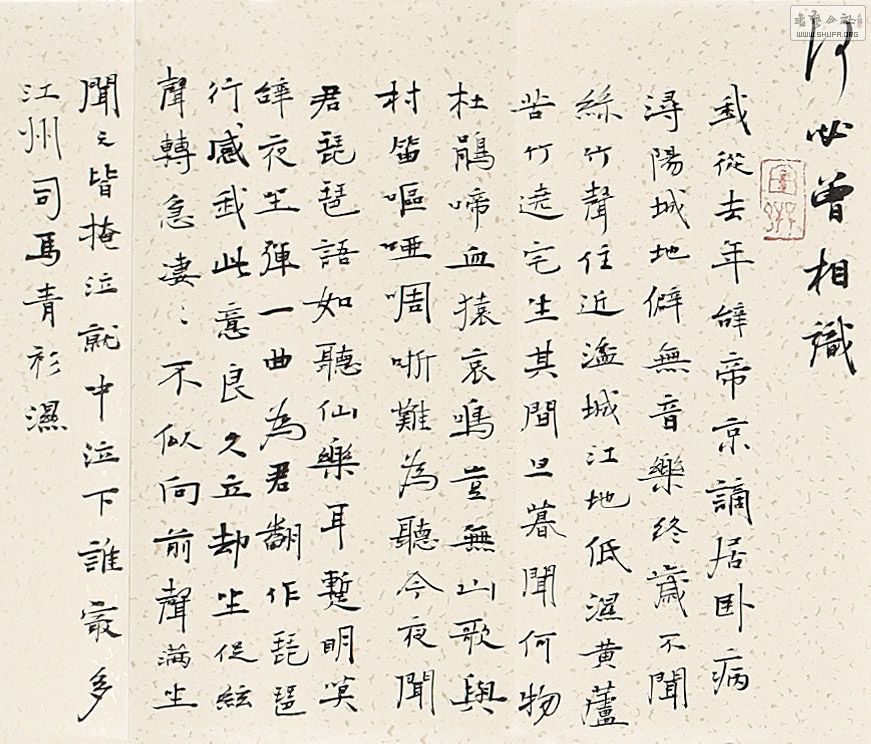 何必曾相識
我從去年辭帝京謫居卧病
潯陽城地僻無音樂終歲不聞
絲竹聲住近湓城江地低濕黃蘆
苦竹遶宅生其間旦暮聞何物
杜鵑啼血猿哀鳴豈無山歌與
村笛嘔啞啁哳難為聽今夜聞
君琵琶語如聽仙樂耳暫明莫
辭夜坐彈一曲為君翻作琵琶
行感我此意良久立却坐促絃
聲轉急凄〻不似向前聲滿坐
聞之皆掩泣就中泣下誰最多
江州司馬青衫濕
書藝公社
WWW.SHUFA.ORG